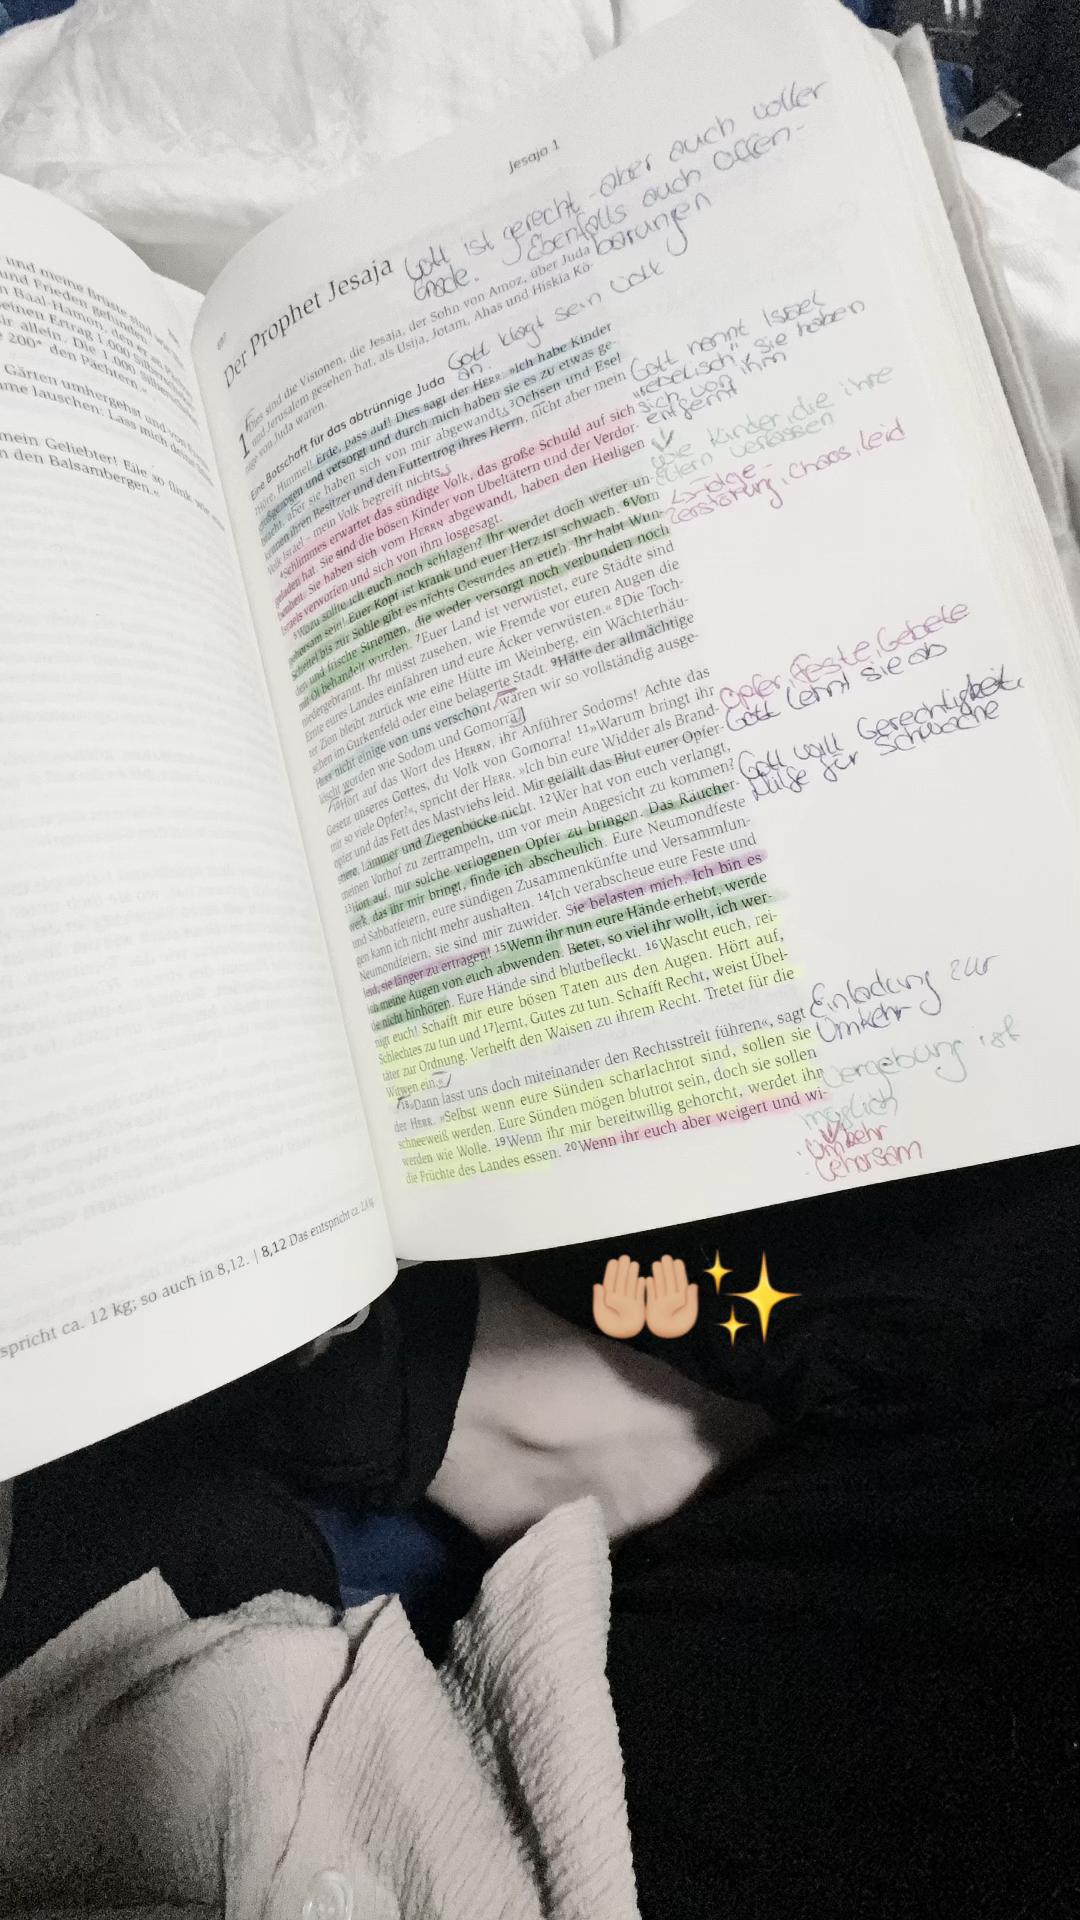 und meine Brüste sind
und Frieden gefunden
n Baal-Hamon, den er an
einen Ertrag 1.000
ir allein. Die 1.000
200* den Pächtern.«
Gärten umhergehst und
me lauschen: Lass mich
mein Geliebter! Eile so flink
n den Balsambergen.«
spricht ca. 12 kg; so auch in 8,12. | 8,12 Das entspricht ca. 2,4 kg
Jesaja 1
Der Prophet Jesaja
Gott ist gerecht aber auch voller
Gnade. Ebenfalls auch Offen-
barungen
1 Dies sind die Visionen, die Jesaja, der Sohn von Amoz, über Juda
und Jerusalem gesehen hat, als Usija, Jotam, Ahas und Hiskia Kö-
nige von Juda waren.
Eine Botschaft für das abtrünnige Juda
Gott klagt sein Volk
an.
²Höre, Himmel! Erde, pass auf! Dies sagt der HERR: »Ich habe Kinder
großgezogen und versorgt und durch mich haben sie es zu etwas ge-
bracht, aber sie haben sich von mir abgewandt. ³Ochsen und Esel
kennen ihren Besitzer und den Futtertrog ihres Herrn, nicht aber mein
Volk Israel – mein Volk begreift nichts.
⁴Schlimmes erwartet das sündige Volk, das große Schuld auf sich
geladen hat. Sie sind die bösen Kinder von Übeltätern und der Verdor-
benheit. Sie haben sich vom HERRN abgewandt, haben den Heiligen
Israels verworfen und sich von ihm losgesagt.
⁵Wozu sollte ich euch noch schlagen? Ihr werdet doch weiter un-
gehorsam sein! Euer Kopf ist krank und euer Herz ist schwach. ⁶Vom
Scheitel bis zur Sohle gibt es nichts Gesundes an euch. Ihr habt Wun-
den und frische Striemen, die weder versorgt noch verbunden noch
mit Öl behandelt wurden. ⁷Euer Land ist verwüstet, eure Städte sind
niedergebrannt. Ihr müsst zusehen, wie Fremde vor euren Augen die
Ernte eures Landes einfahren und eure Äcker verwüsten.« ⁸Die Toch-
ter Zion bleibt zurück wie eine Hütte im Weinberg, ein Wächterhäu-
schen im Gurkenfeld oder eine belagerte Stadt. ⁹Hätte der allmächtige
HERR nicht einige von uns verschont, wären wir so vollständig ausge-
löscht worden wie Sodom und Gomorra!
¹⁰Hört auf das Wort des HERRN, ihr Anführer Sodoms! Achte das
Gesetz unseres Gottes, du Volk von Gomorra! ¹¹»Warum bringt ihr
mir so viele Opfer?«, spricht der HERR. »Ich bin eure Widder als Brand-
opfer und das Fett des Mastviehs leid. Mir gefällt das Blut eurer Opfer-
stiere, Lämmer und Ziegenböcke nicht. ¹²Wer hat von euch verlangt,
meinen Vorhof zu zertrampeln, um vor mein Angesicht zu kommen?
¹³Hört auf, mir solche verlogenen Opfer zu bringen. Das Räucher-
werk, das ihr mir bringt, finde ich abscheulich. Eure Neumondfeste
und Sabbatfeiern, eure sündigen Zusammenkünfte und Versammlun-
gen kann ich nicht mehr aushalten. ¹⁴Ich verabscheue eure Feste und
Neumondfeiern, sie sind mir zuwider. Sie belasten mich. Ich bin es
leid, sie länger zu ertragen! ¹⁵Wenn ihr nun eure Hände erhebt, werde
ich meine Augen von euch abwenden. Betet, so viel ihr wollt, ich wer-
de nicht hinhören. Eure Hände sind blutbefleckt. ¹⁶Wascht euch, rei-
nigt euch! Schafft mir eure bösen Taten aus den Augen. Hört auf,
Schlechtes zu tun und ¹⁷lernt, Gutes zu tun. Schafft Recht, weist Übel-
täter zur Ordnung. Verhelft den Waisen zu ihrem Recht. Tretet für die
Witwen ein.«
¹⁸»Dann lasst uns doch miteinander den Rechtsstreit führen«, sagt
der HERR. »Selbst wenn eure Sünden scharlachrot sind, sollen sie
schneeweiß werden. Eure Sünden mögen blutrot sein, doch sie sollen
werden wie Wolle. ¹⁹Wenn ihr mir bereitwillig gehorcht, werdet ihr
die Früchte des Landes essen. ²⁰Wenn ihr euch aber weigert und wi-
Gott nennt Israel
"rebelisch" sie haben
sich von ihm
entfernt
wie Kinder, die ihre
Eltern verlassen
↳ Folge -
Zerstörung, Chaos, Leid
Opfer, Feste, Gebete
Gott lehnt sie ab
Gott will Gerechtigkeit,
Hilfe für Schwache
Einladung zur
Umkehr
Vergebung ist
möglich
· Umkehr
· Gehorsam